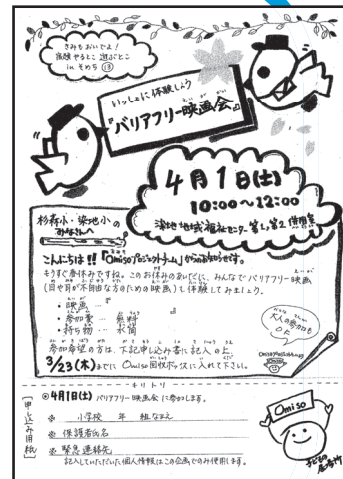 きみもおいでよ!
体験 やるとこ 遊ぶとこ
in そめち ⑬
いっしょに体験しよう
『バリアフリー映画会』
4月1日(土)
10:00〜12:00
染地地域福祉センター 第1,第2 併用室
杉森小・染地小の
みなさんへ
こんにちは!!『Omisoプロジェクトチーム』からのお知らせです。
もうすぐ春休みですね。このお休みのあいだに、みんなでバリアフリー映画
(目や耳が不自由な方のための映画)を体験してみましょう。
・映画…『
・参加費…無料
・持ち物…水筒
大人の参加も
OK
参加希望の方は、下記申し込み書に記入の上、
3/23(木)までに Omiso回収ボックスに入れて下さい。
キリトリ
【申し込み用紙】
◎4月1日(土) バリアフリー映画会 に参加します。
※ 小学校 年 組 なまえ
※ 保護者氏名
※ 緊急連絡先
記入していただいた個人情報はこの企画でのみ使用します。
Omiso
子どもの居場所